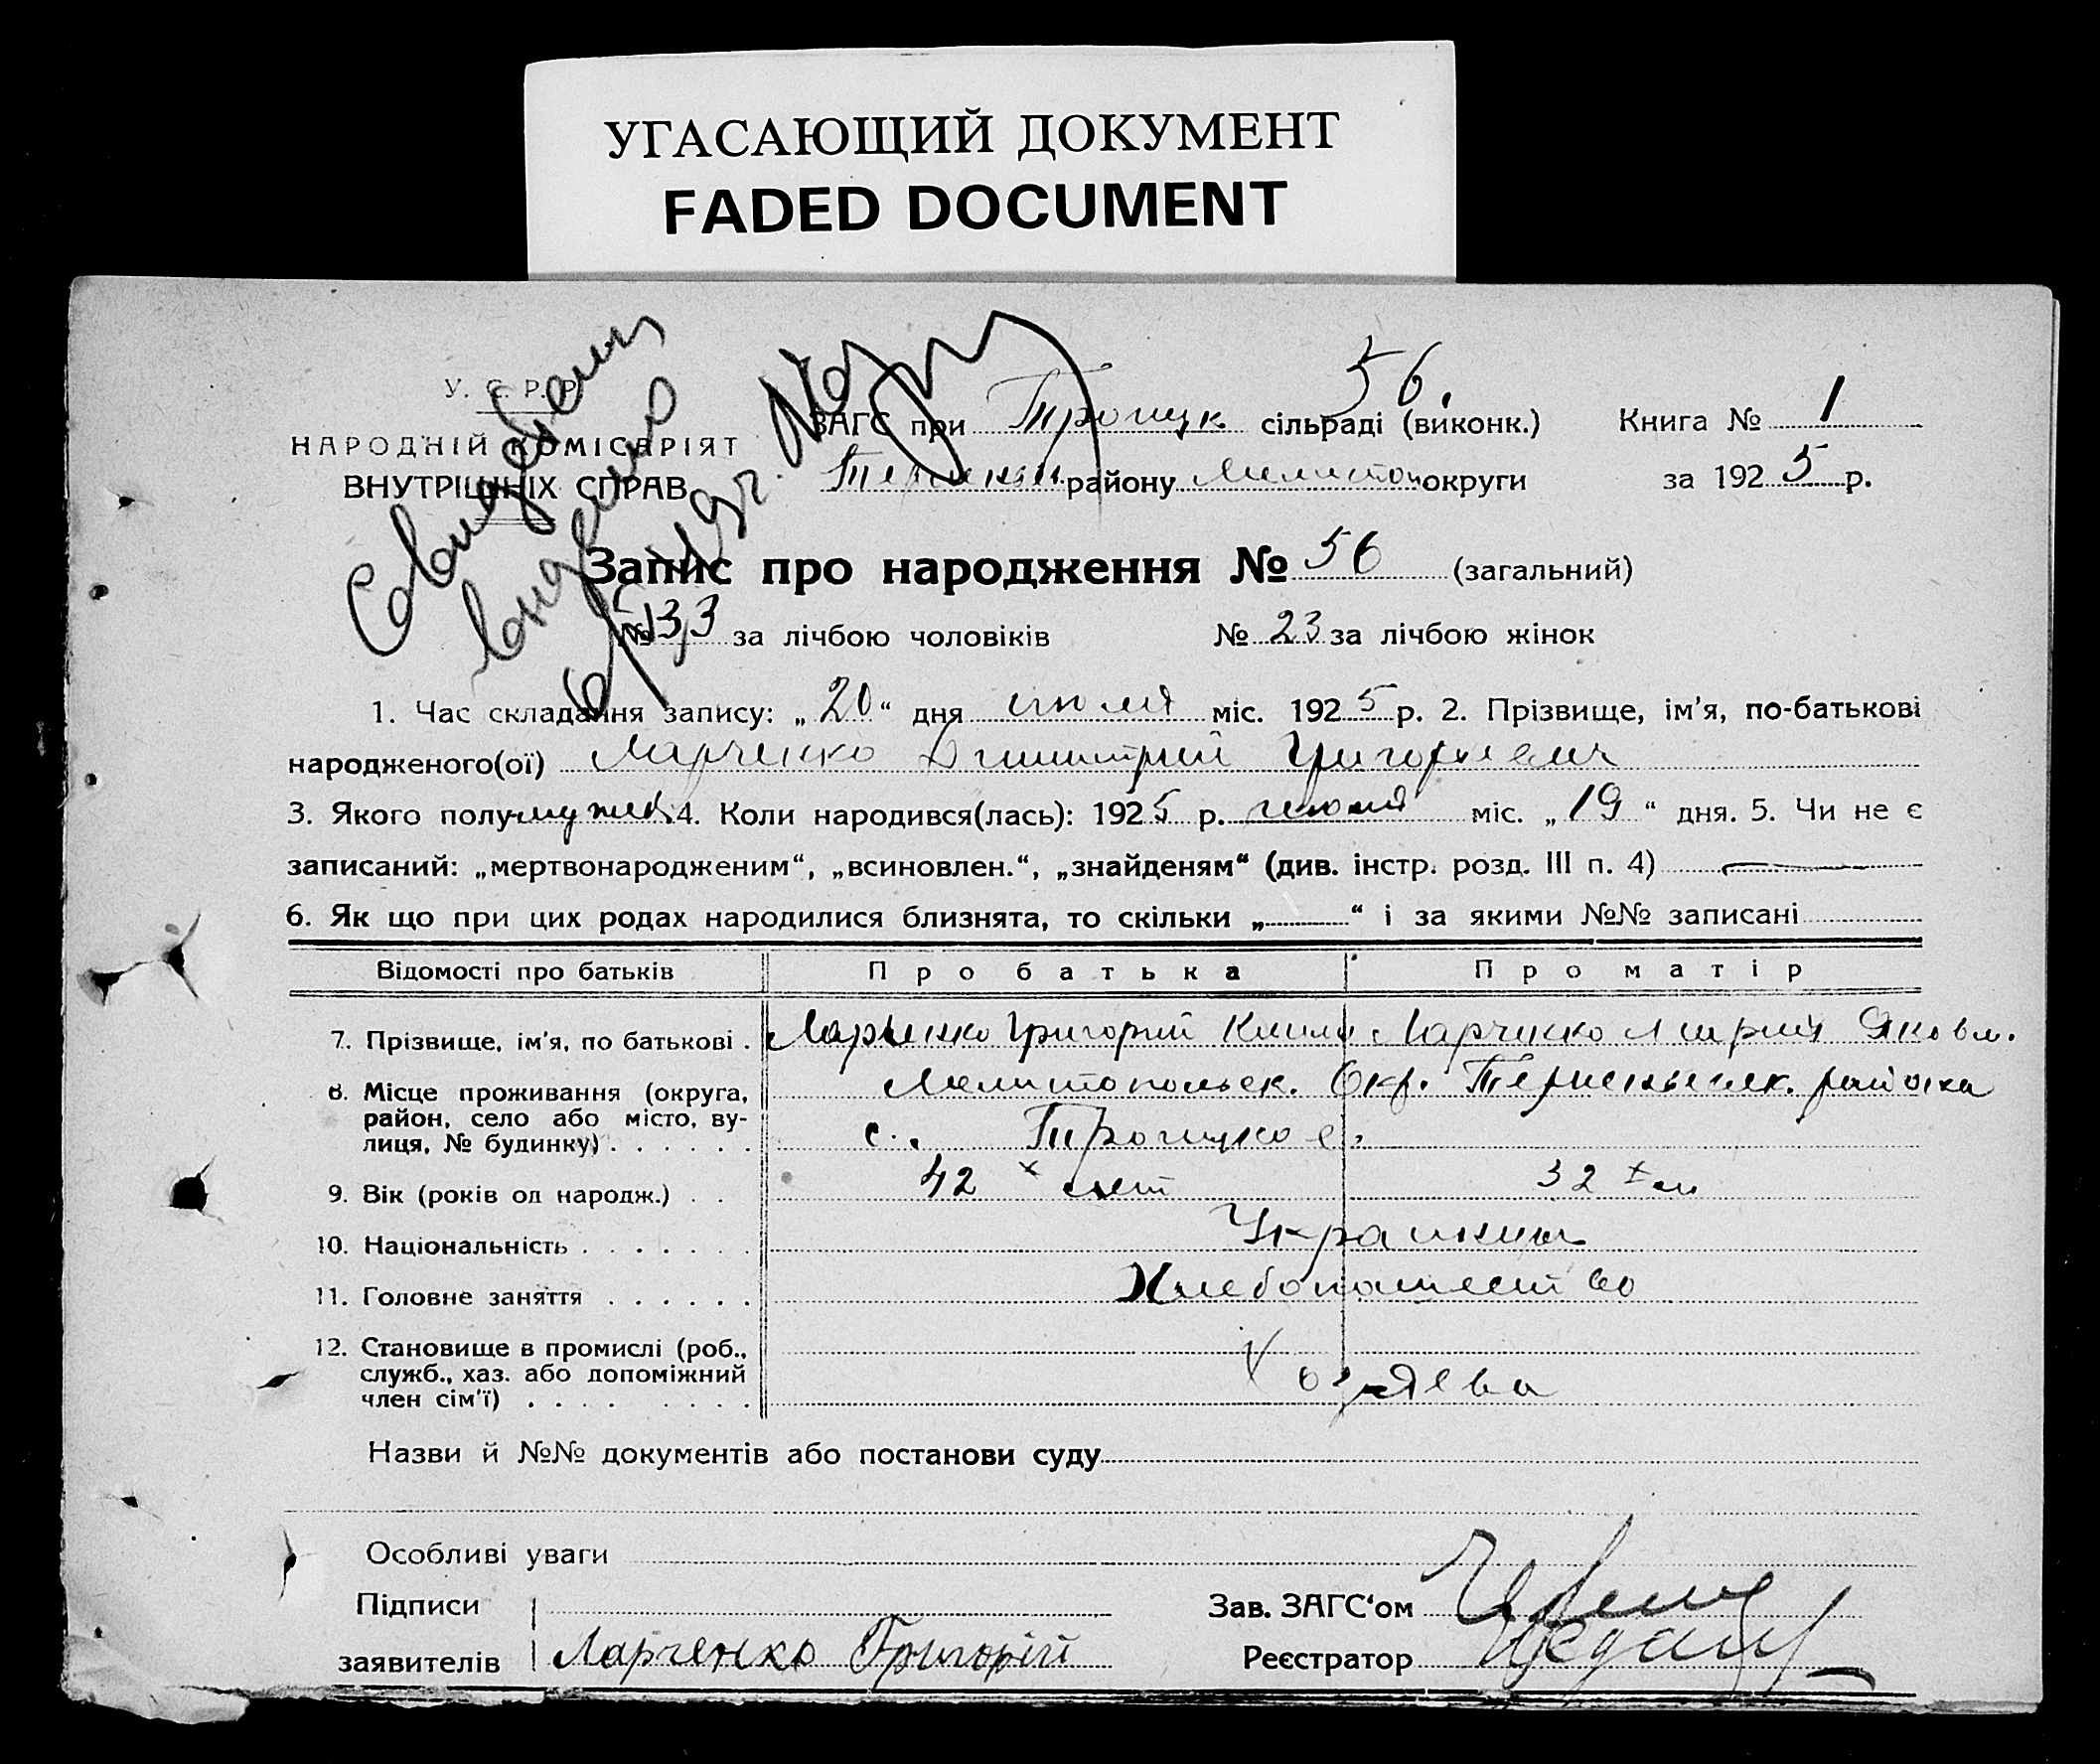 УГАСАЮЩИЙ ДОКУМЕНТ
FADED DOCUMENT
56.
У. С. Р. Р.
НАРОДНІЙ КОМІСАРІЯТ
ВНУТРІШНІХ СПРАВ
ЗАГС при Троицк сільраді (виконк.) Книга № 1
району Мелитоп округи за 1925 р.
Запис про народження № 56 (загальний)
№ 33 за лічбою чоловіків № 23 за лічбою жінок
1. Час складання запису: „20“ дня июля міс. 1925 р. 2. Прізвище, ім'я, по-батькові
народженого(ої) Марченко Дмитрий Григориевич
3. Якого полу мужск 4. Коли народився(лась): 1925 р. июля міс. „19“ дня. 5. Чи не є
записаний: „мертвонародженим“, „всиновлен.“, „знайденям“ (див. інстр. розд. III п. 4)
6. Як що при цих родах народилися близнята, то скільки „ “ і за якими №№ записані
Відомості про батьків Про батька Про матір
7. Прізвище, ім'я, по батькові . Марченко Григорий Марченко Мария Яковл.
8. Місце проживання (округа, Мелитопольск. Окр. района
район, село або місто, ву-
лиця, № будинку) . . . . . . с. Троицкое.
9. Вік (років од народж.) . . 42 х лет 32 х л
10. Національність . . . . . . . Украинцы
11. Головне заняття . . . . . . Хлебопашество
12. Становище в промислі (роб.,
служб., хаз. або допоміжний Хозяева
член сім'ї) . . . . . . . .
Назви й №№ документів або постанови суду
Особливі уваги
Підписи Зав. ЗАГС‘ом
заявителів Марченко Григорій Реєстратор